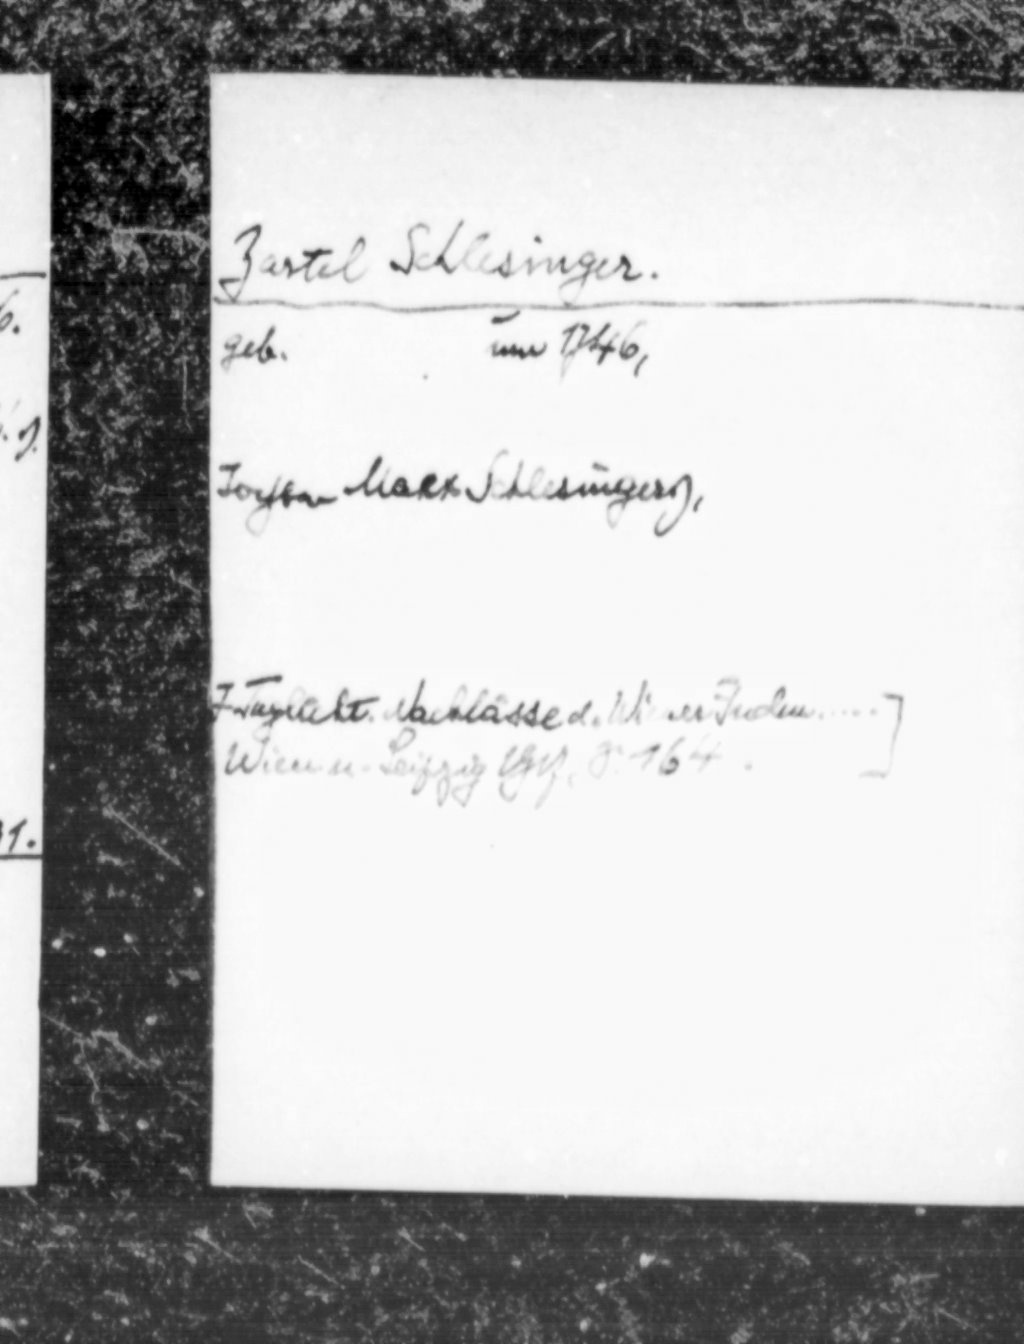 6.
Zartel Schlesinger.
geb. um 1746,
Marx Schlesingers,
J. Taglicht. Nachlässe d. Wiener Juden.....]
Wien u. Leipzig 1917, S. 164.